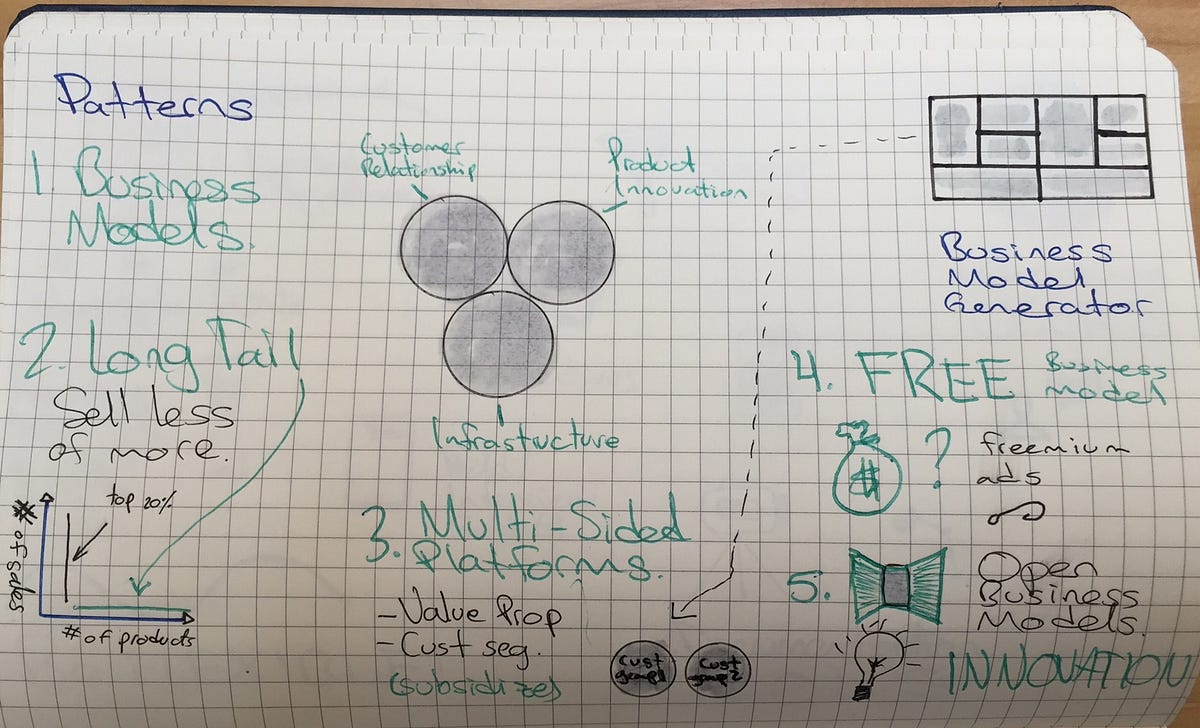 Patterns
1. Business
Models.
Customer
Relationship
Product
Innovation
Infrastucture
2. Long Tail
Sell less
of more.
top 20%
# of sales
# of products
3. Multi-Sided
Platforms.
- Value Prop
- Cust seg.
(subsidize)
Cust
group1
Cust
group2
Business
Model
Generator
4. FREE Business
model
$ ?
freemium
ads
5. Open
Business
Models.
INNOVATION